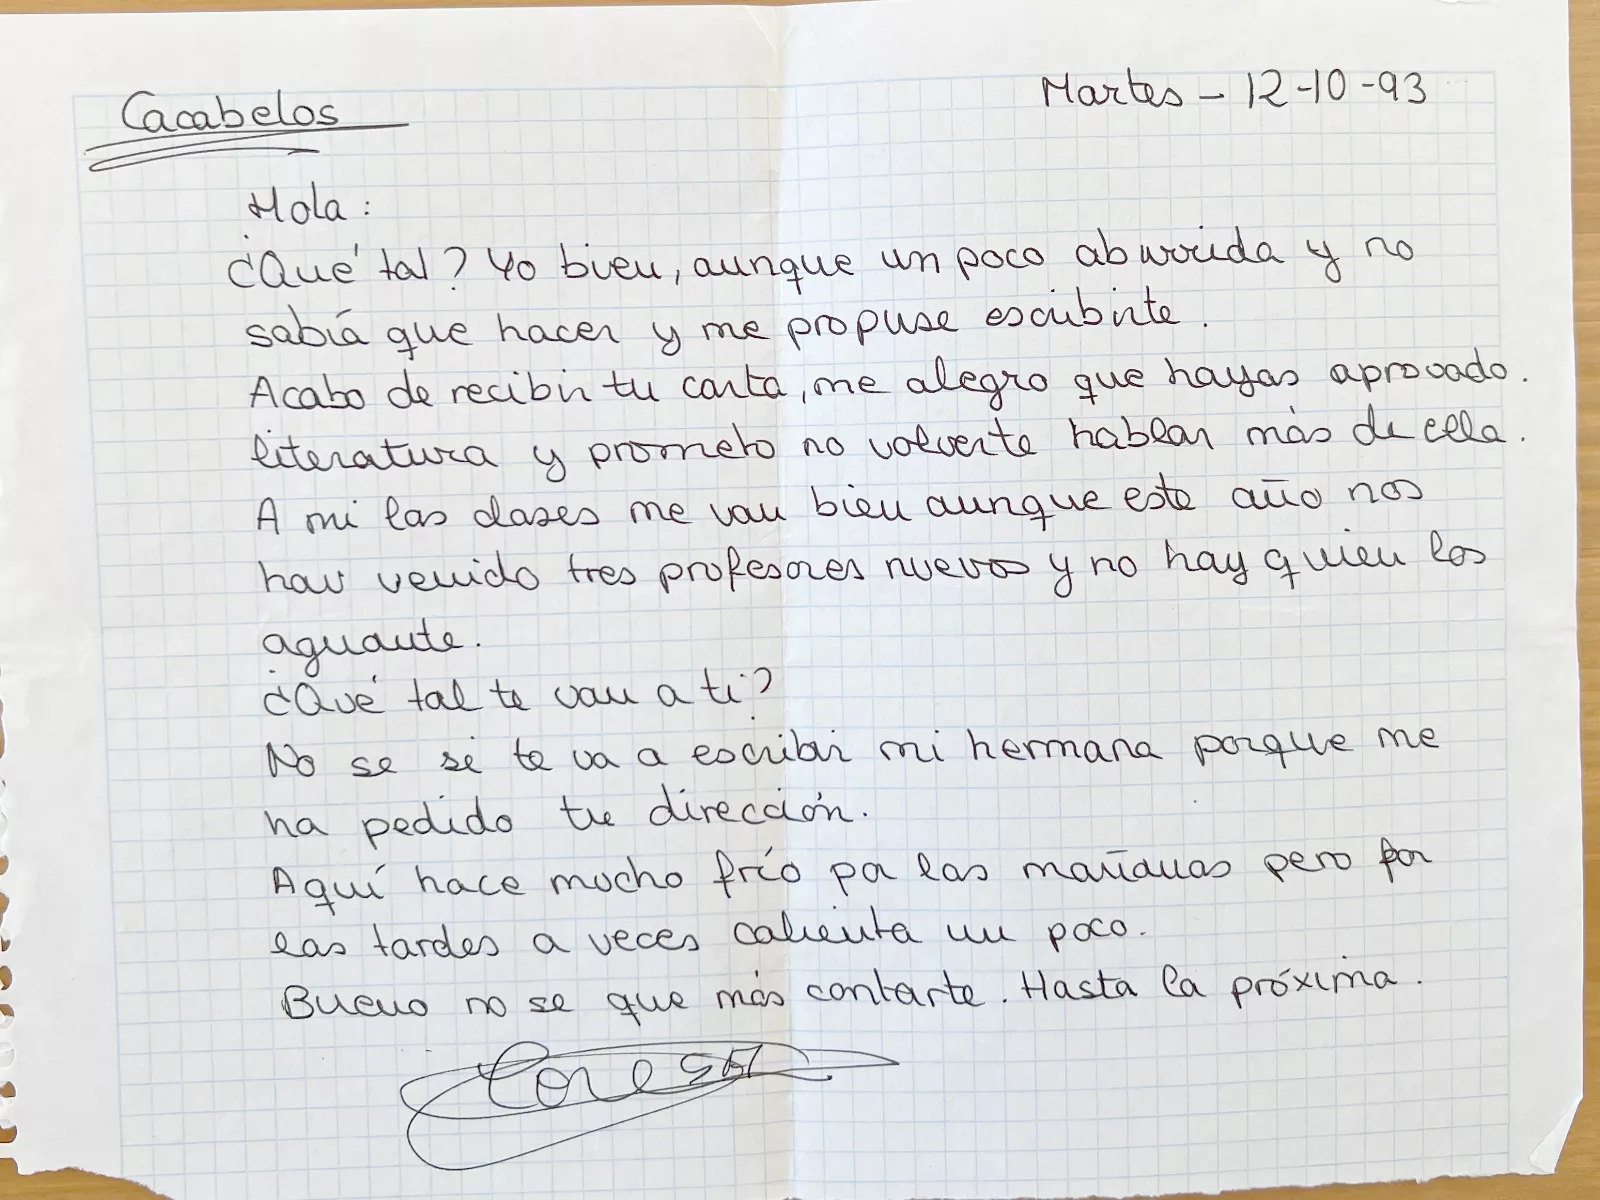 Cacabelos
Martes - 12-10-93
Hola:
¿Qué tal? Yo bien, aunque un poco aburrida y no
sabiá que hacer y me propuse escribirte.
Acabo de recibir tu carta, me alegro que hayas aprovado.
literatura y prometo no volverte hablar más de ella.
A mi las clases me van bien aunque este año nos
han venido tres profesores nuevos y no hay quien los
aguante.
¿Qué tal te van a ti?
No se si te va a escribir mi hermana porque me
ha pedido tu dirección.
Aquí hace mucho frío por las mañanas pero por
las tardes a veces calienta un poco.
Bueno no se que más contarte. Hasta la próxima.